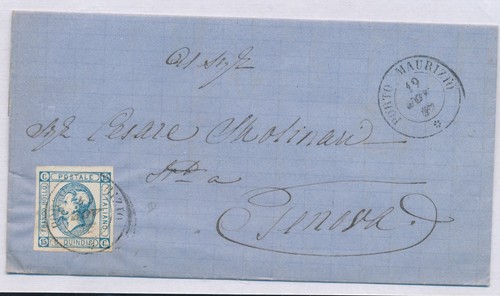 Al Sig.r
Sig. Cesare Molinari
Genova.
PORTO MAURIZIO
19
C POSTALE 15
FRANCO BOLLO
ITALIANO
15 QUINDICI C